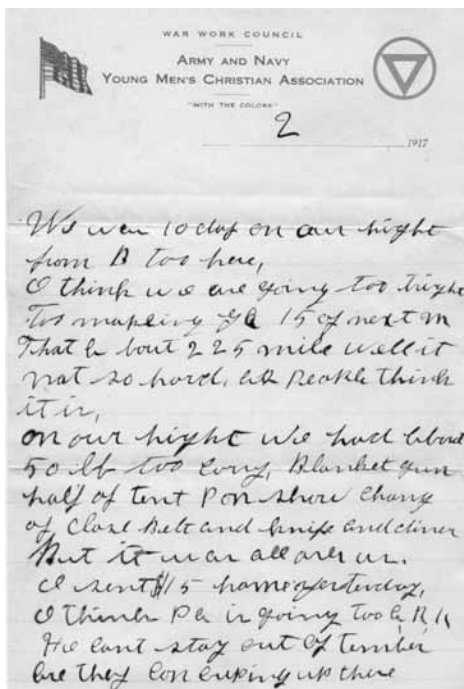 WAR WORK COUNCIL
ARMY AND NAVY
YOUNG MEN'S CHRISTIAN ASSOCIATION
"WITH THE COLORS"
2
1917
We wer 10 day on our hight
from B too here,
I think we are going too hight
Too 15 of next m
That is bout 225 mile well it
not so hard, as people think
it is,
on our hight we had about
50 lb too cary, Blanket gun
half of tent Pon shoes Change
of Close Belt and knife and diner
But it was all over us.
I sent $15 home yesterday,
I think Pa is going too
He cant stay out of timber
are they up there